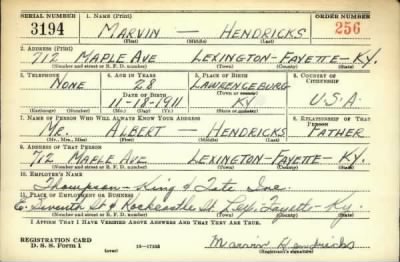 SERIAL NUMBER 1. NAME (Print) ORDER NUMBER
3194 MARVIN — HENDRICKS 256
(First) (Middle) (Last)
2. ADDRESS (Print)
712 MAPLE AVE LEXINGTON-FAYETTE-KY.
(Number and street or R. F. D. number) (Town) (County) (State)
3. TELEPHONE 4. AGE IN YEARS 5. PLACE OF BIRTH 6. COUNTRY OF CITIZENSHIP
NONE 28 LAWRENCEBURG
DATE OF BIRTH (Town or county)
11-18-1911 KY U.S.A.
(Exchange) (Number) (Mo.) (Day) (Yr.) (State or country)
7. NAME OF PERSON WHO WILL ALWAYS KNOW YOUR ADDRESS 8. RELATIONSHIP OF THAT PERSON
MR. ALBERT — HENDRICKS FATHER
(Mr., Mrs., Miss) (First) (Middle) (Last)
9. ADDRESS OF THAT PERSON
712 MAPLE AVE LEXINGTON-FAYETTE-KY.
(Number and street or R. F. D. number) (Town) (County) (State)
10. EMPLOYER'S NAME
Thompson-King & Tate Inc.
11. PLACE OF EMPLOYMENT OR BUSINESS
E. Seventh St & Rockcastle St. Lex. Fayette-Ky.
(Number and street or R. F. D. number) (Town) (County) (State)
I AFFIRM THAT I HAVE VERIFIED ABOVE ANSWERS AND THAT THEY ARE TRUE.
REGISTRATION CARD
D. S. S. FORM 1 (over) 16-17105 Marvin Hendricks
(Registrant's signature)